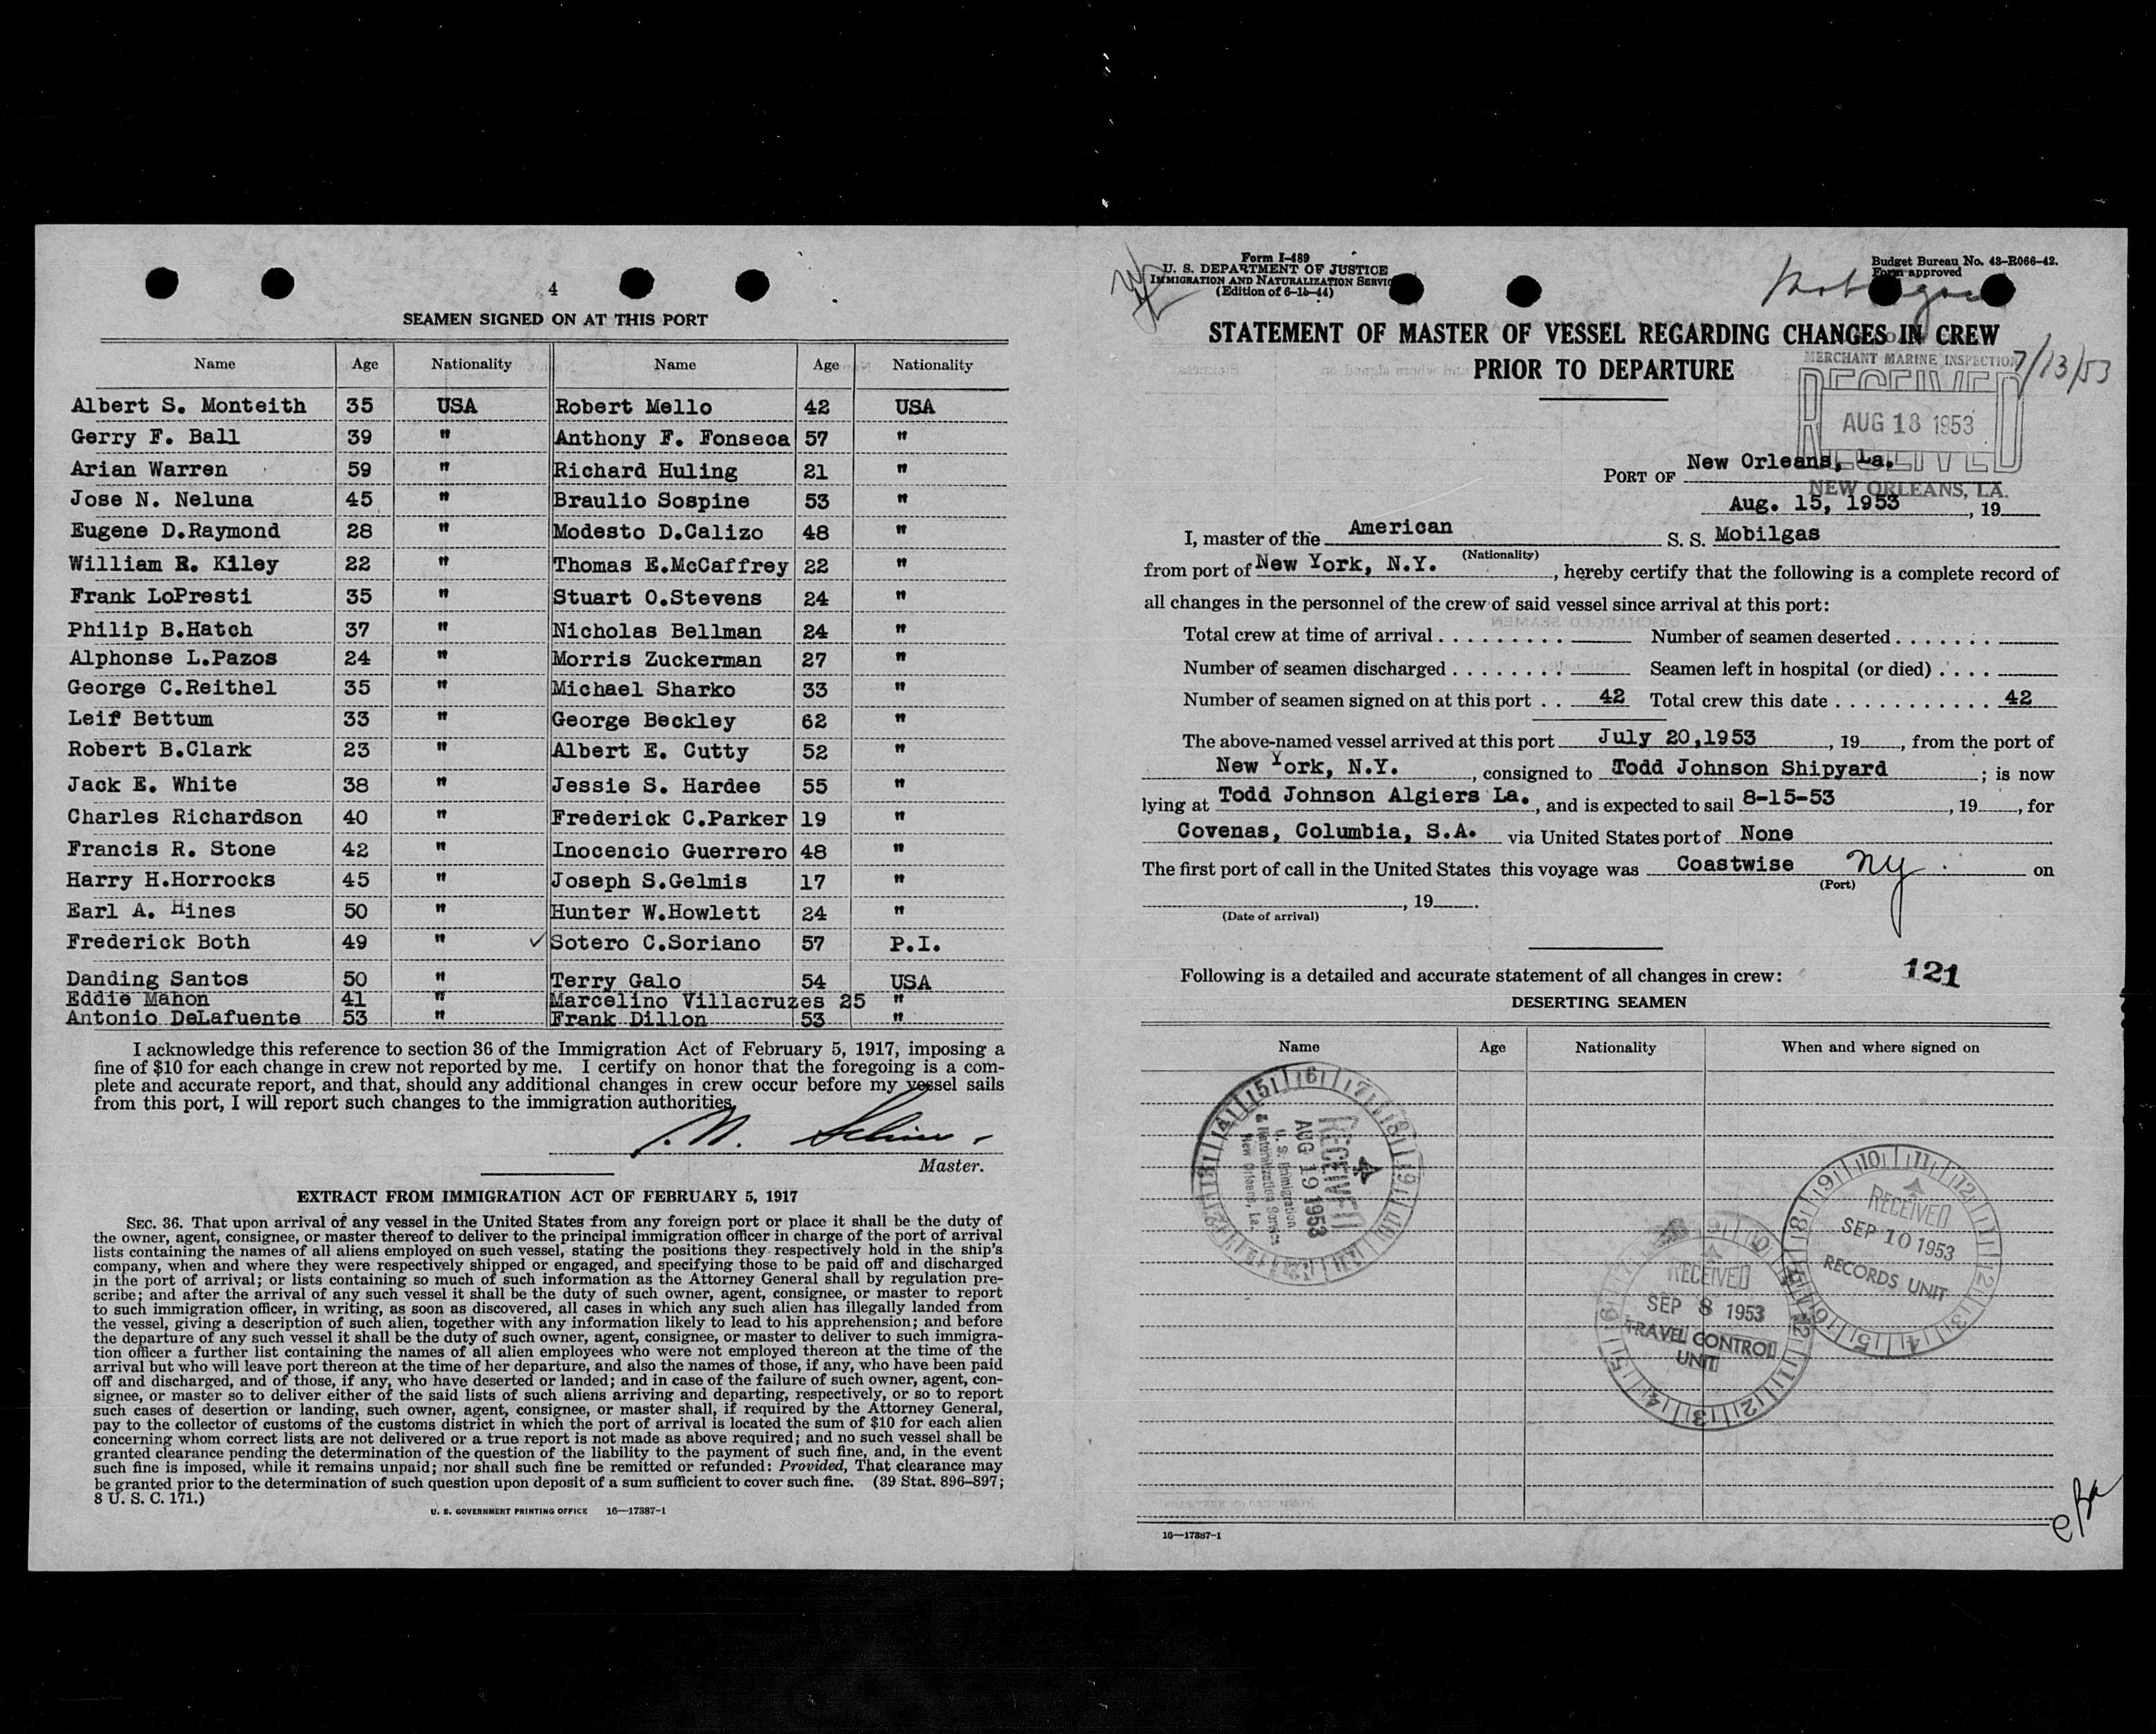 4
SEAMEN SIGNED ON AT THIS PORT
Name Age Nationality Name Age Nationality
Albert S. Monteith 35 USA Robert Mello 42 USA
Gerry F. Ball 39 " Anthony F. Fonseca 57 "
Arian Warren 59 " Richard Huling 21 "
Jose N. Neluna 45 " Braulio Sospine 53 "
Eugene D.Raymond 28 " Modesto D.Calizo 48 "
William R. Kiley 22 " Thomas E.McCaffrey 22 "
Frank LoPresti 35 " Stuart O.Stevens 24 "
Philip B.Hatch 37 " Nicholas Bellman 24 "
Alphonse L.Pazos 24 " Morris Zuckerman 27 "
George C.Reithel 35 " Michael Sharko 33 "
Leif Bettum 33 " George Beckley 62 "
Robert B.Clark 23 " Albert E. Cutty 52 "
Jack E. White 38 " Jessie S. Hardee 55 "
Charles Richardson 40 " Frederick C.Parker 19 "
Francis R. Stone 42 " Inocencio Guerrero 48 "
Harry H.Horrocks 45 " Joseph S.Gelmis 17 "
Earl A. Hines 50 " Hunter W.Howlett 24 "
Frederick Both 49 " ✓ Sotero C.Soriano 57 P.I.
Danding Santos 50 " Terry Galo 54 USA
Eddie Mahon 41 " Marcelino Villacruzes 25 "
Antonio DeLafuente 53 " Frank Dillon 53 "
I acknowledge this reference to section 36 of the Immigration Act of February 5, 1917, imposing a
fine of $10 for each change in crew not reported by me. I certify on honor that the foregoing is a com-
plete and accurate report, and that, should any additional changes in crew occur before my vessel sails
from this port, I will report such changes to the immigration authorities.
Master.
EXTRACT FROM IMMIGRATION ACT OF FEBRUARY 5, 1917
SEC. 36. That upon arrival of any vessel in the United States from any foreign port or place it shall be the duty of
the owner, agent, consignee, or master thereof to deliver to the principal immigration officer in charge of the port of arrival
lists containing the names of all aliens employed on such vessel, stating the positions they respectively hold in the ship's
company, when and where they were respectively shipped or engaged, and specifying those to be paid off and discharged
in the port of arrival; or lists containing so much of such information as the Attorney General shall by regulation pre-
scribe; and after the arrival of any such vessel it shall be the duty of such owner, agent, consignee, or master to report
to such immigration officer, in writing, as soon as discovered, all cases in which any such alien has illegally landed from
the vessel, giving a description of such alien, together with any information likely to lead to his apprehension; and before
the departure of any such vessel it shall be the duty of such owner, agent, consignee, or master to deliver to such immigra-
tion officer a further list containing the names of all alien employees who were not employed thereon at the time of the
arrival but who will leave port thereon at the time of her departure, and also the names of those, if any, who have been paid
off and discharged, and of those, if any, who have deserted or landed; and in case of the failure of such owner, agent, con-
signee, or master so to deliver either of the said lists of such aliens arriving and departing, respectively, or so to report
such cases of desertion or landing, such owner, agent, consignee, or master shall, if required by the Attorney General,
pay to the collector of customs of the customs district in which the port of arrival is located the sum of $10 for each alien
concerning whom correct lists are not delivered or a true report is not made as above required; and no such vessel shall be
granted clearance pending the determination of the question of the liability to the payment of such fine, and, in the event
such fine is imposed, while it remains unpaid; nor shall such fine be remitted or refunded: Provided, That clearance may
be granted prior to the determination of such question upon deposit of a sum sufficient to cover such fine. (39 Stat. 896-897;
8 U. S. C. 171.)
U. S. GOVERNMENT PRINTING OFFICE 16—17387-1
Form I-489
U. S. DEPARTMENT OF JUSTICE
IMMIGRATION AND NATURALIZATION SERVICE
(Edition of 6-15-44)
Budget Bureau No. 43-R066-42.
Form approved
Mobilgas
STATEMENT OF MASTER OF VESSEL REGARDING CHANGES IN CREW
PRIOR TO DEPARTURE
7/13/53
MERCHANT MARINE INSPECTION
RECEIVED
AUG 18 1953
RECEIVED
NEW ORLEANS, LA.
PORT OF New Orleans, La.
Aug. 15, 1953, 19
I, master of the American S. S. Mobilgas
(Nationality)
from port of New York, N.Y., hereby certify that the following is a complete record of
all changes in the personnel of the crew of said vessel since arrival at this port:
Total crew at time of arrival . . . . . . . . . Number of seamen deserted . . . . . . .
Number of seamen discharged . . . . . . . . Seamen left in hospital (or died) . . . .
Number of seamen signed on at this port . . 42 Total crew this date . . . . . . . . . . . 42
The above-named vessel arrived at this port July 20,1953, 19, from the port of
New York, N.Y., consigned to Todd Johnson Shipyard; is now
lying at Todd Johnson Algiers La., and is expected to sail 8-15-53, 19, for
Covenas, Columbia, S.A. via United States port of None
The first port of call in the United States this voyage was Coastwise NY on
(Port)
, 19.
(Date of arrival)
Following is a detailed and accurate statement of all changes in crew: 121
DESERTING SEAMEN
Name Age Nationality When and where signed on
RECEIVED
AUG 19 1953
U. S. Immigration
& Naturalization Service
New Orleans, La.
RECEIVED
SEP 10 1953
RECORDS UNIT
RECEIVED
SEP 8 1953
TRAVEL CONTROL
UNIT
16—17387-1